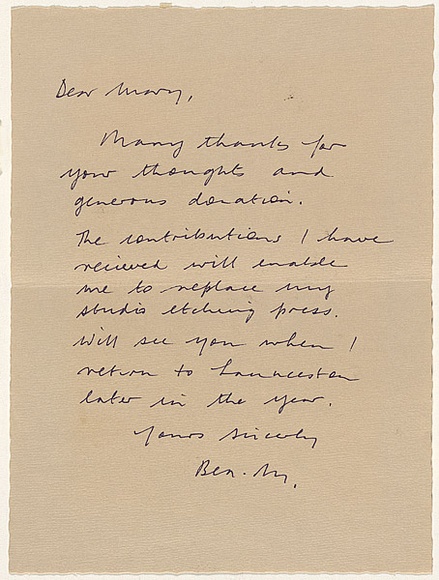 Dear Mary,
Many thanks for
your thoughts and
generous donation.
The contributions I have
recieved will enable
me to replace my
studio etching press.
Will see you when I
return to Launceston
later in the year.
Yours sincerely
Bea.